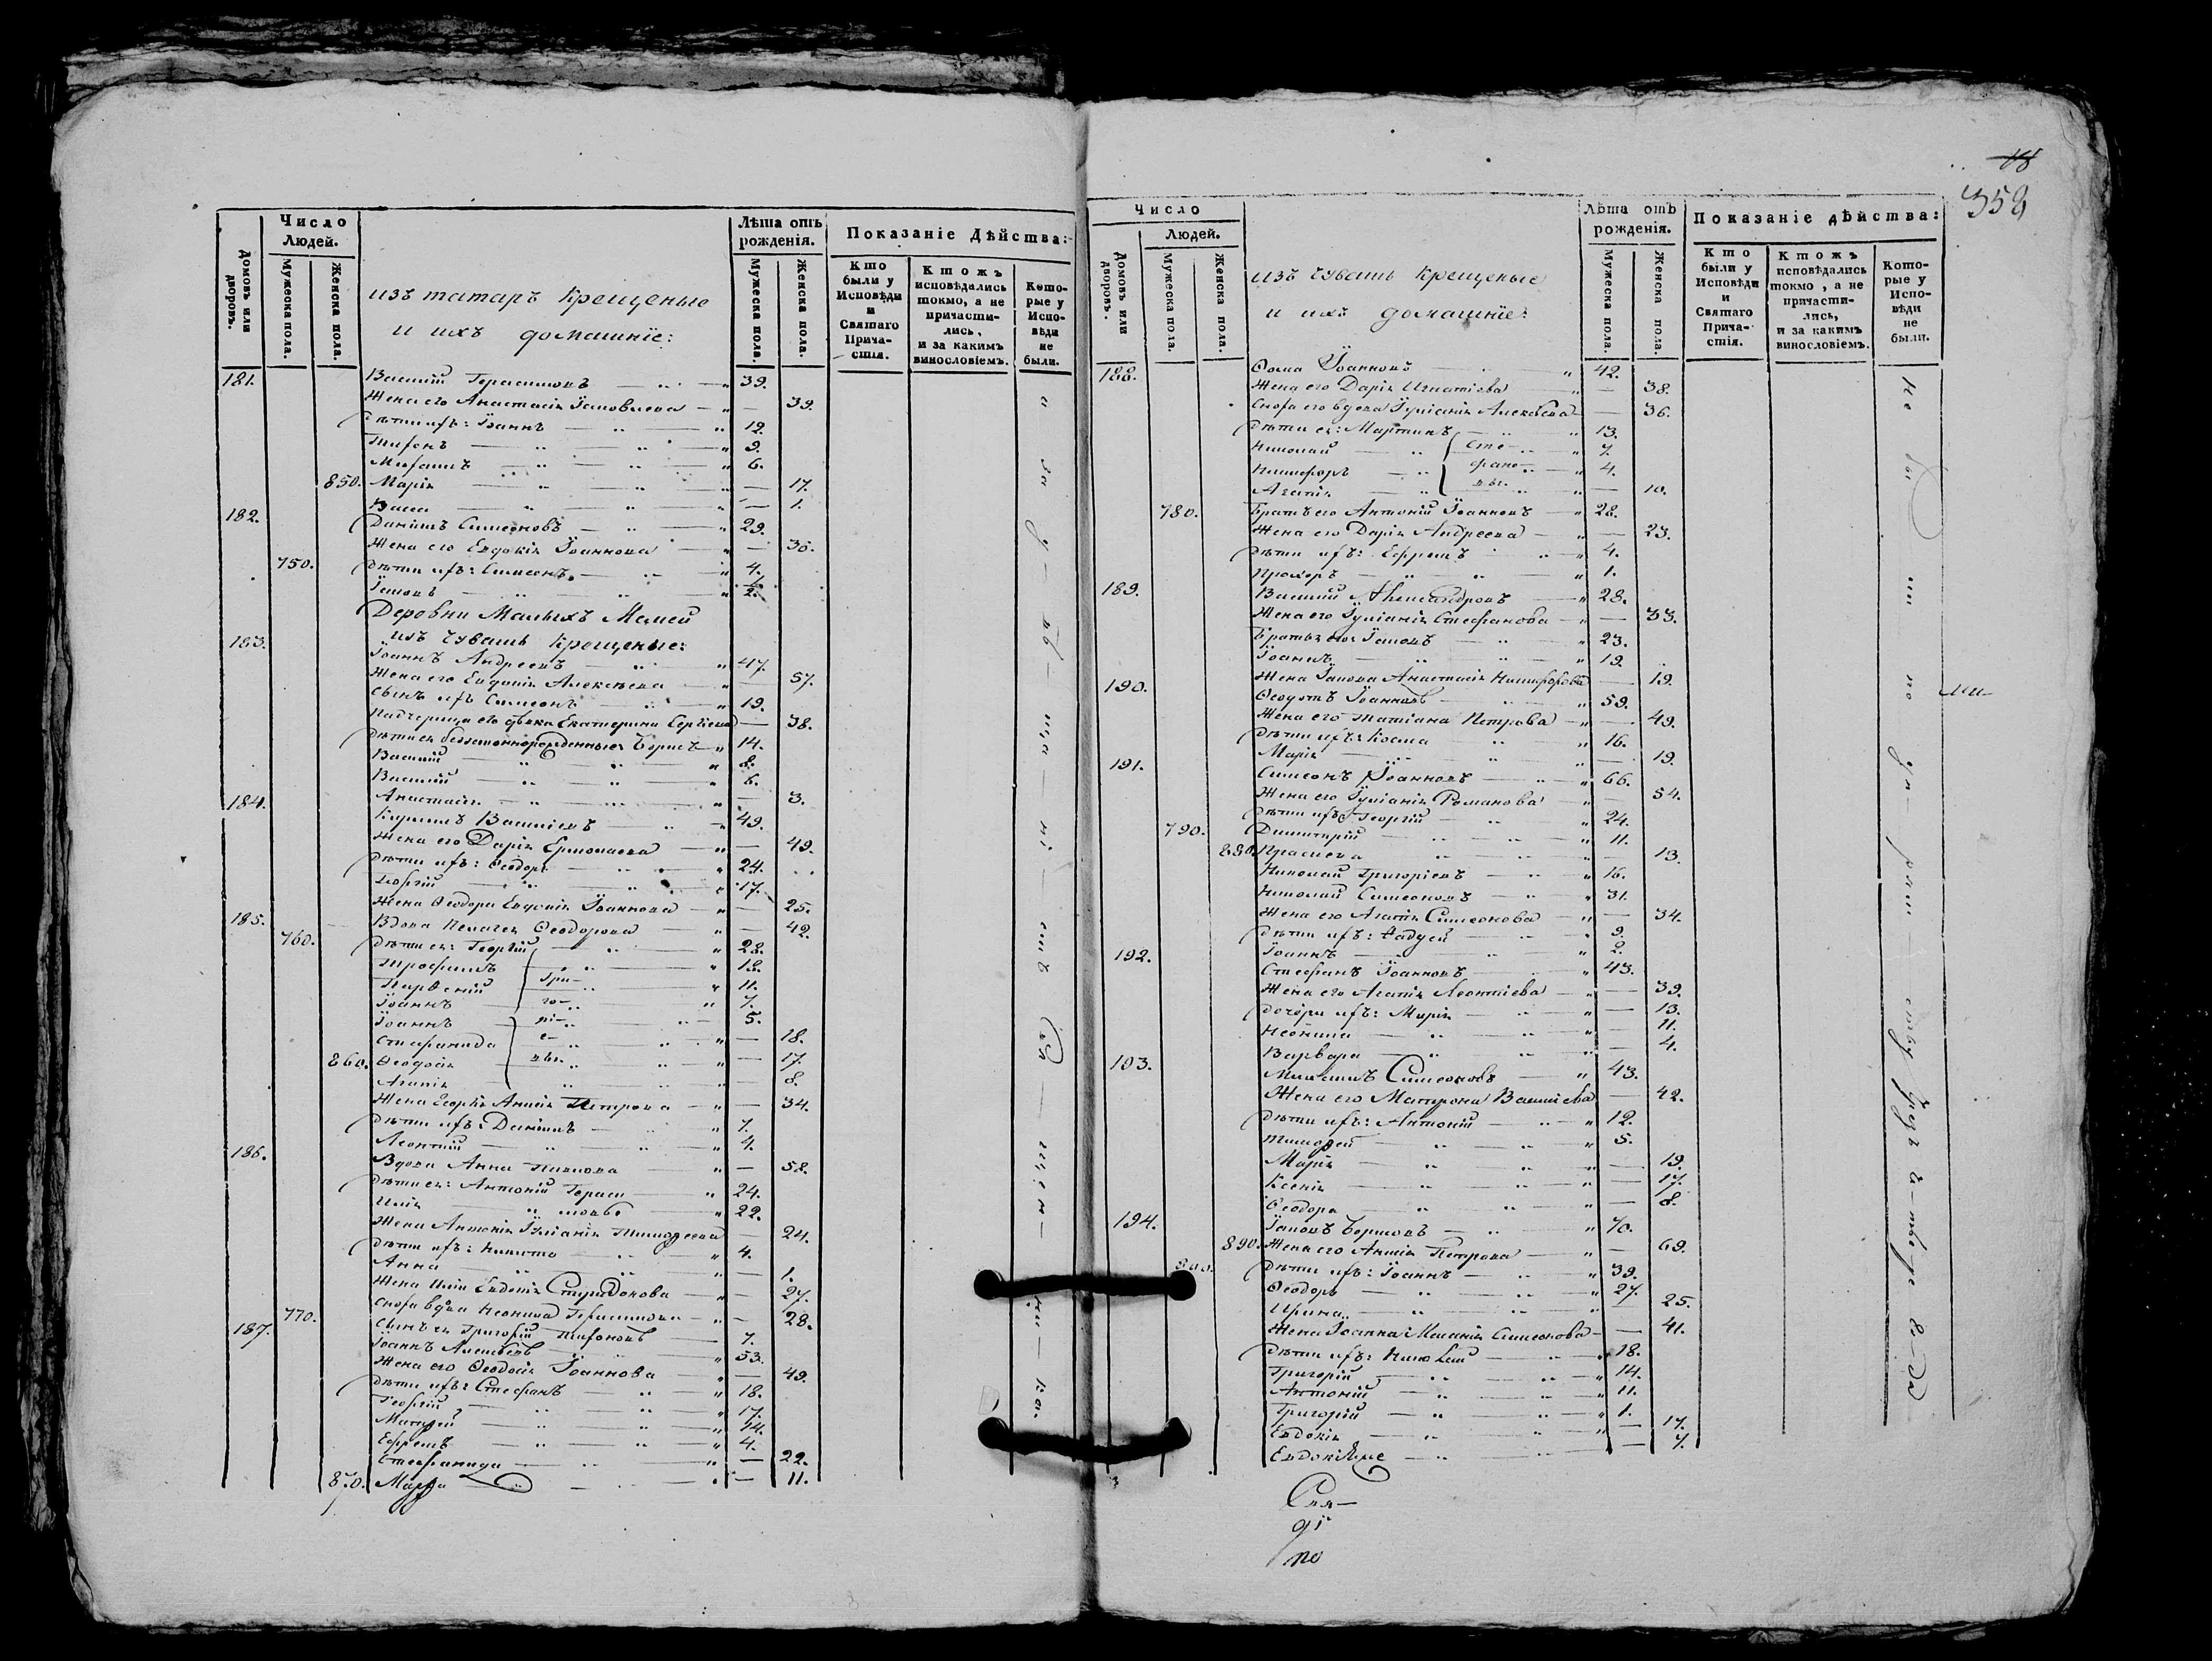 Число
Людей.
Домовъ или дворовъ.
Мужеска пола.
Женска пола.
изъ татаръ крещеные
и ихъ домашніе:
Лѣта отъ рожденія.
Мужеска пола.
Женска пола.
Показаніе Дѣйства:
Кто были у Исповѣди и Святаго Прича-стія.
Ктожъ исповѣдались токмо, а не причасти-лись, и за какимъ винословіемъ.
Кото-рые у Испо-вѣди не были.
181. Василій Герасимовъ 39.
Жена его Анастасія Іаковлева — 39.
Дѣти ихъ: Іоаннъ 12.
Тихонъ 9.
Михаилъ 6.
850. Марія — 17.
Васса — 1.
182. Даніилъ Симеоновъ 29.
Жена его Евдокія Іоаннова — 35.
750. Дѣти ихъ: Симеонъ 4.
Іаковъ ½.
Деревни Малыхъ
изъ чувашъ крещеные:
183. Іоаннъ Андреевъ 47.
Жена его Евдокія Алексѣева — 57.
Сынъ ихъ Симеонъ 19.
Падчерица его дѣвка Екатерина Сергіева — 38.
Дѣти ея беззаконнорожденные: Борисъ 14.
Василій 8.
Василій 6.
Анастасія — 3.
184. Кириллъ Василіевъ 49.
Жена его Дарія Ермолаева — 49.
Дѣти ихъ: Ѳеодоръ 24.
Георгій 17.
Жена Ѳеодора Евдокія Іоаннова — 25.
185. Вдова Пелагея Ѳеодорова — 42.
760. Дѣти ея: Георгій 23.
Трофимъ 18.
Парѳеній Гри- 11.
Іоаннъ го- 7.
Іоаннъ рі- 5.
Стефанида е- — 18.
860. Ѳеодосія вы. — 17.
Агапія — 8.
Жена Георгія Анисія Петрова — 34.
Дѣти ихъ: Даніилъ 7.
Леонтій 4.
186. Вдова Анна — 58.
Дѣти ея: Антоній Гераси 24.
Илія мовы 22.
Жена Антонія Іуліанія Тимофеева — 24.
Дѣти ихъ: Никита 4.
Анна — 1.
Жена Иліи Евдокія Спиридонова — 27.
Сноха вдова Неонила Герасимова — 28.
770. Сынъ ея Григорій Тихоновъ 7.
187. Іоаннъ Алексѣевъ 53.
Жена его Ѳеодосія Іоаннова — 49.
Дѣти ихъ: Стефанъ 18.
Георгій 17.
Матфей 14.
Ефремъ 4.
Стефанида — 22.
870. Марфа — 11.
18
358
Число
Людей.
Домовъ или дворовъ.
Мужеска пола.
Женска пола.
изъ чувашъ крещеные
и ихъ домашніе:
Лѣта отъ рожденія.
Мужеска пола.
Женска пола.
Показаніе дѣйства:
Кто были у Исповѣди и Святаго Прича-стія.
Ктожъ исповѣдались токмо, а не причасти-лись, и за какимъ винословіемъ.
Кото-рые у Испо-вѣди не были.
188. Ѳома Іоанновъ 42.
Жена его Дарія Игнатіева — 38.
Сноха его вдова Іуліанія Алексѣева — 36.
Дѣти ея: Мартинъ 13.
Николай Сте- 7.
Никифоръ фано- 4.
Агапія вы. — 10.
780. Братъ его Антоній Іоанновъ 28.
Жена его Дарія Андреева — 23.
Дѣти ихъ: Ефремъ 4.
Прохоръ 1.
189. Василій Александровъ 28.
Жена его Іуліанія Стефанова — 33.
Братья его: Іаковъ 23.
Іоаннъ 19.
Жена Іакова Анастасія Никифорова — 19.
190. Ѳеодотъ Іоанновъ 59.
Жена его Татіана Петрова — 49.
Дѣти ихъ: Косма 16.
Марія — 19.
191. Симеонъ Іоанновъ 66.
Жена его Іуліанія Романова — 54.
Дѣти ихъ: Георгій 24.
790. Димитрій 11.
880. Прасковія — 13.
Николай Григоріевъ 16.
Николай Симеоновъ 31.
Жена его Агапія Симеонова — 34.
Дѣти ихъ: Фадѣй 9.
Іоаннъ 2.
192. Стефанъ Іоанновъ 43.
Жена его Агапія Леонтіева — 39.
Дочери ихъ: Марія — 13.
Неонила — 11.
Варвара — 4.
193. Михаилъ Симеоновъ 43.
Жена его Матрона Василіева — 42.
Дѣти ихъ: Антоній 12.
Тимофей 5.
Марія — 19.
Ксенія — 17.
Ѳеодора — 8.
194. Іаковъ Борисовъ 70.
890. Жена его Анисія Петрова — 69.
800. Дѣти ихъ: Іоаннъ 39.
Ѳеодоръ 27.
Ирина — 25.
Жена Іоанна Меланія Симеонова — 41.
Дѣти ихъ: Николай 18.
Григорій 14.
Антоній 11.
Григорій 1.
Евдокія — 17.
Евдокія — 7.
Свя-
ді
по